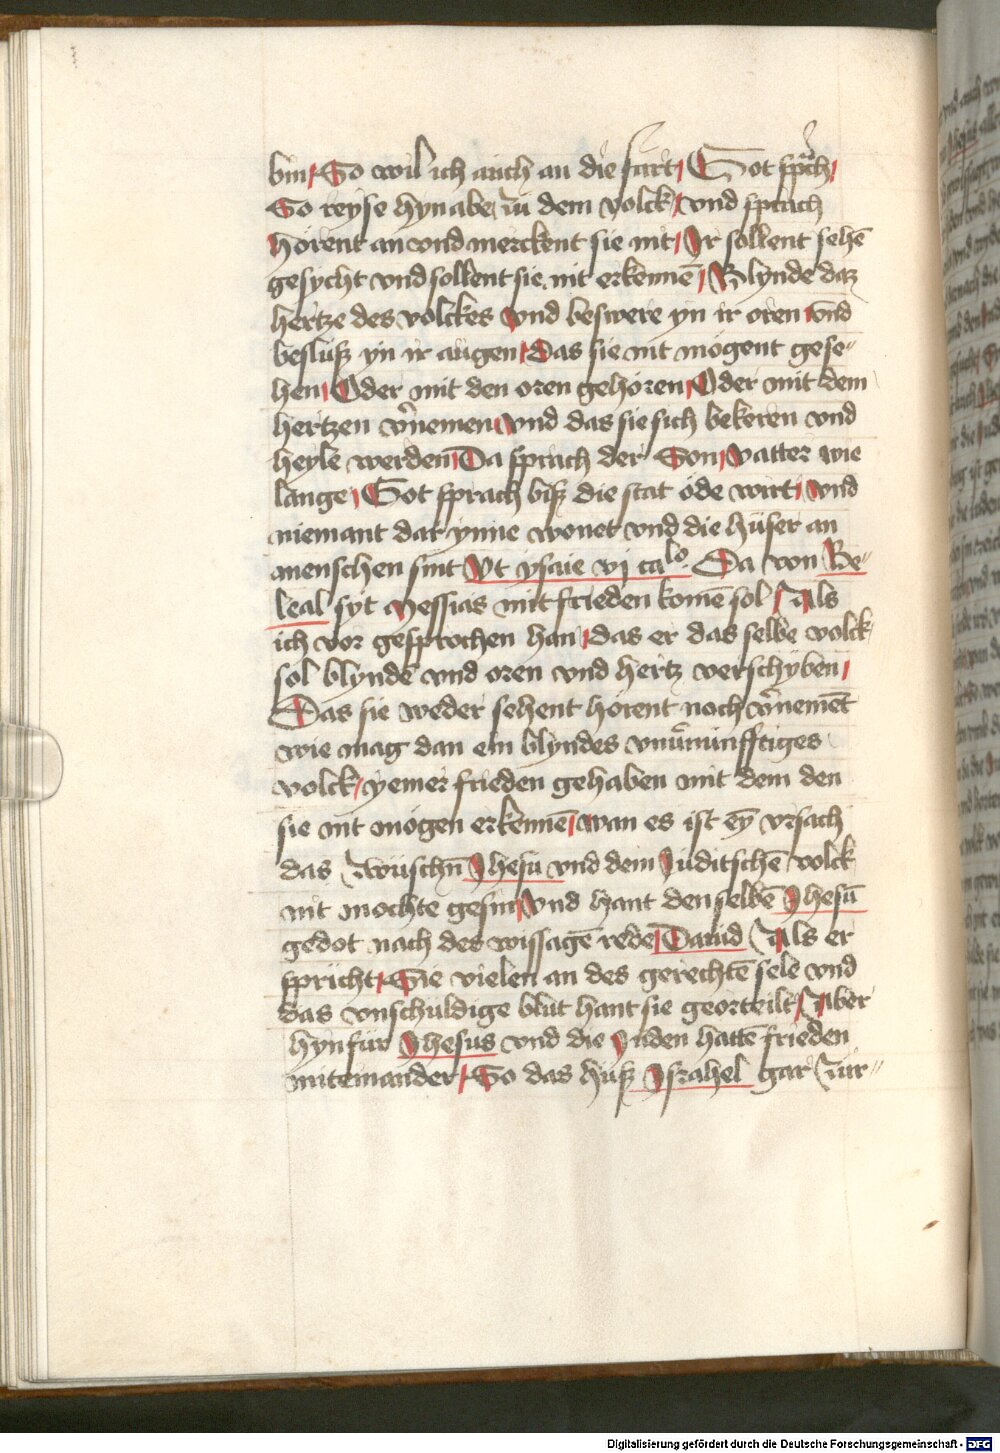 bin / So wil ich auch an die fart / Got sprach /
So reyse hyn abe zu dem volck / vnd sprach
Horent an vnd merckent sie nit / Ir sollent sehē
gesycht vnd sollent sie nit erkennē / Blynde daz
hertze des volckes vnd beswere yn ir oren vnd
besluß yn ir augen / Das sie nit mogent gese-
hen / Oder mit den oren gehoren / Oder mit dem
hertzen v'nemen / vnd das sie sich bekeren vnd
heyle werden / Da sprach der Son / vatter wie
lange / Got sprach biß die stat ode wirt / vnd
niemant dar ynne wonet vnd die huser an
menschen sint Vt ysaie vj ca^lo Da von Be-
leal syt Messias mit frieden komē sol / Als
ich vor gesprochen han / das er das selbe volck
sol blynde vnd oren vnd hertz verschyben /
Das sie weder sehent horent noch v'nemēt
wie mag dan ein blyndes vnu'nunfftiges
volck / yemer frieden gehaben mit dem den
sie nit mogen erkennē / wan es ist eȳ vrsach
das zwuschn̄ Ihesu vnd dem Juditschē volck
nit mochte gesin / Vnd hant den selbē Ihesū
gedot nach des wissagē rede / Dauid / Als er
spricht / Sie vielen an des gerechtē sele vnd
das vnschuldige blut hant sie georteilt / Aber
hynfur Ihesus vnd die Juden hattē frieden
miteinander / So das huß Israhel gar zur-
Digitalisierung gefördert durch die Deutsche Forschungsgemeinschaft - DFG